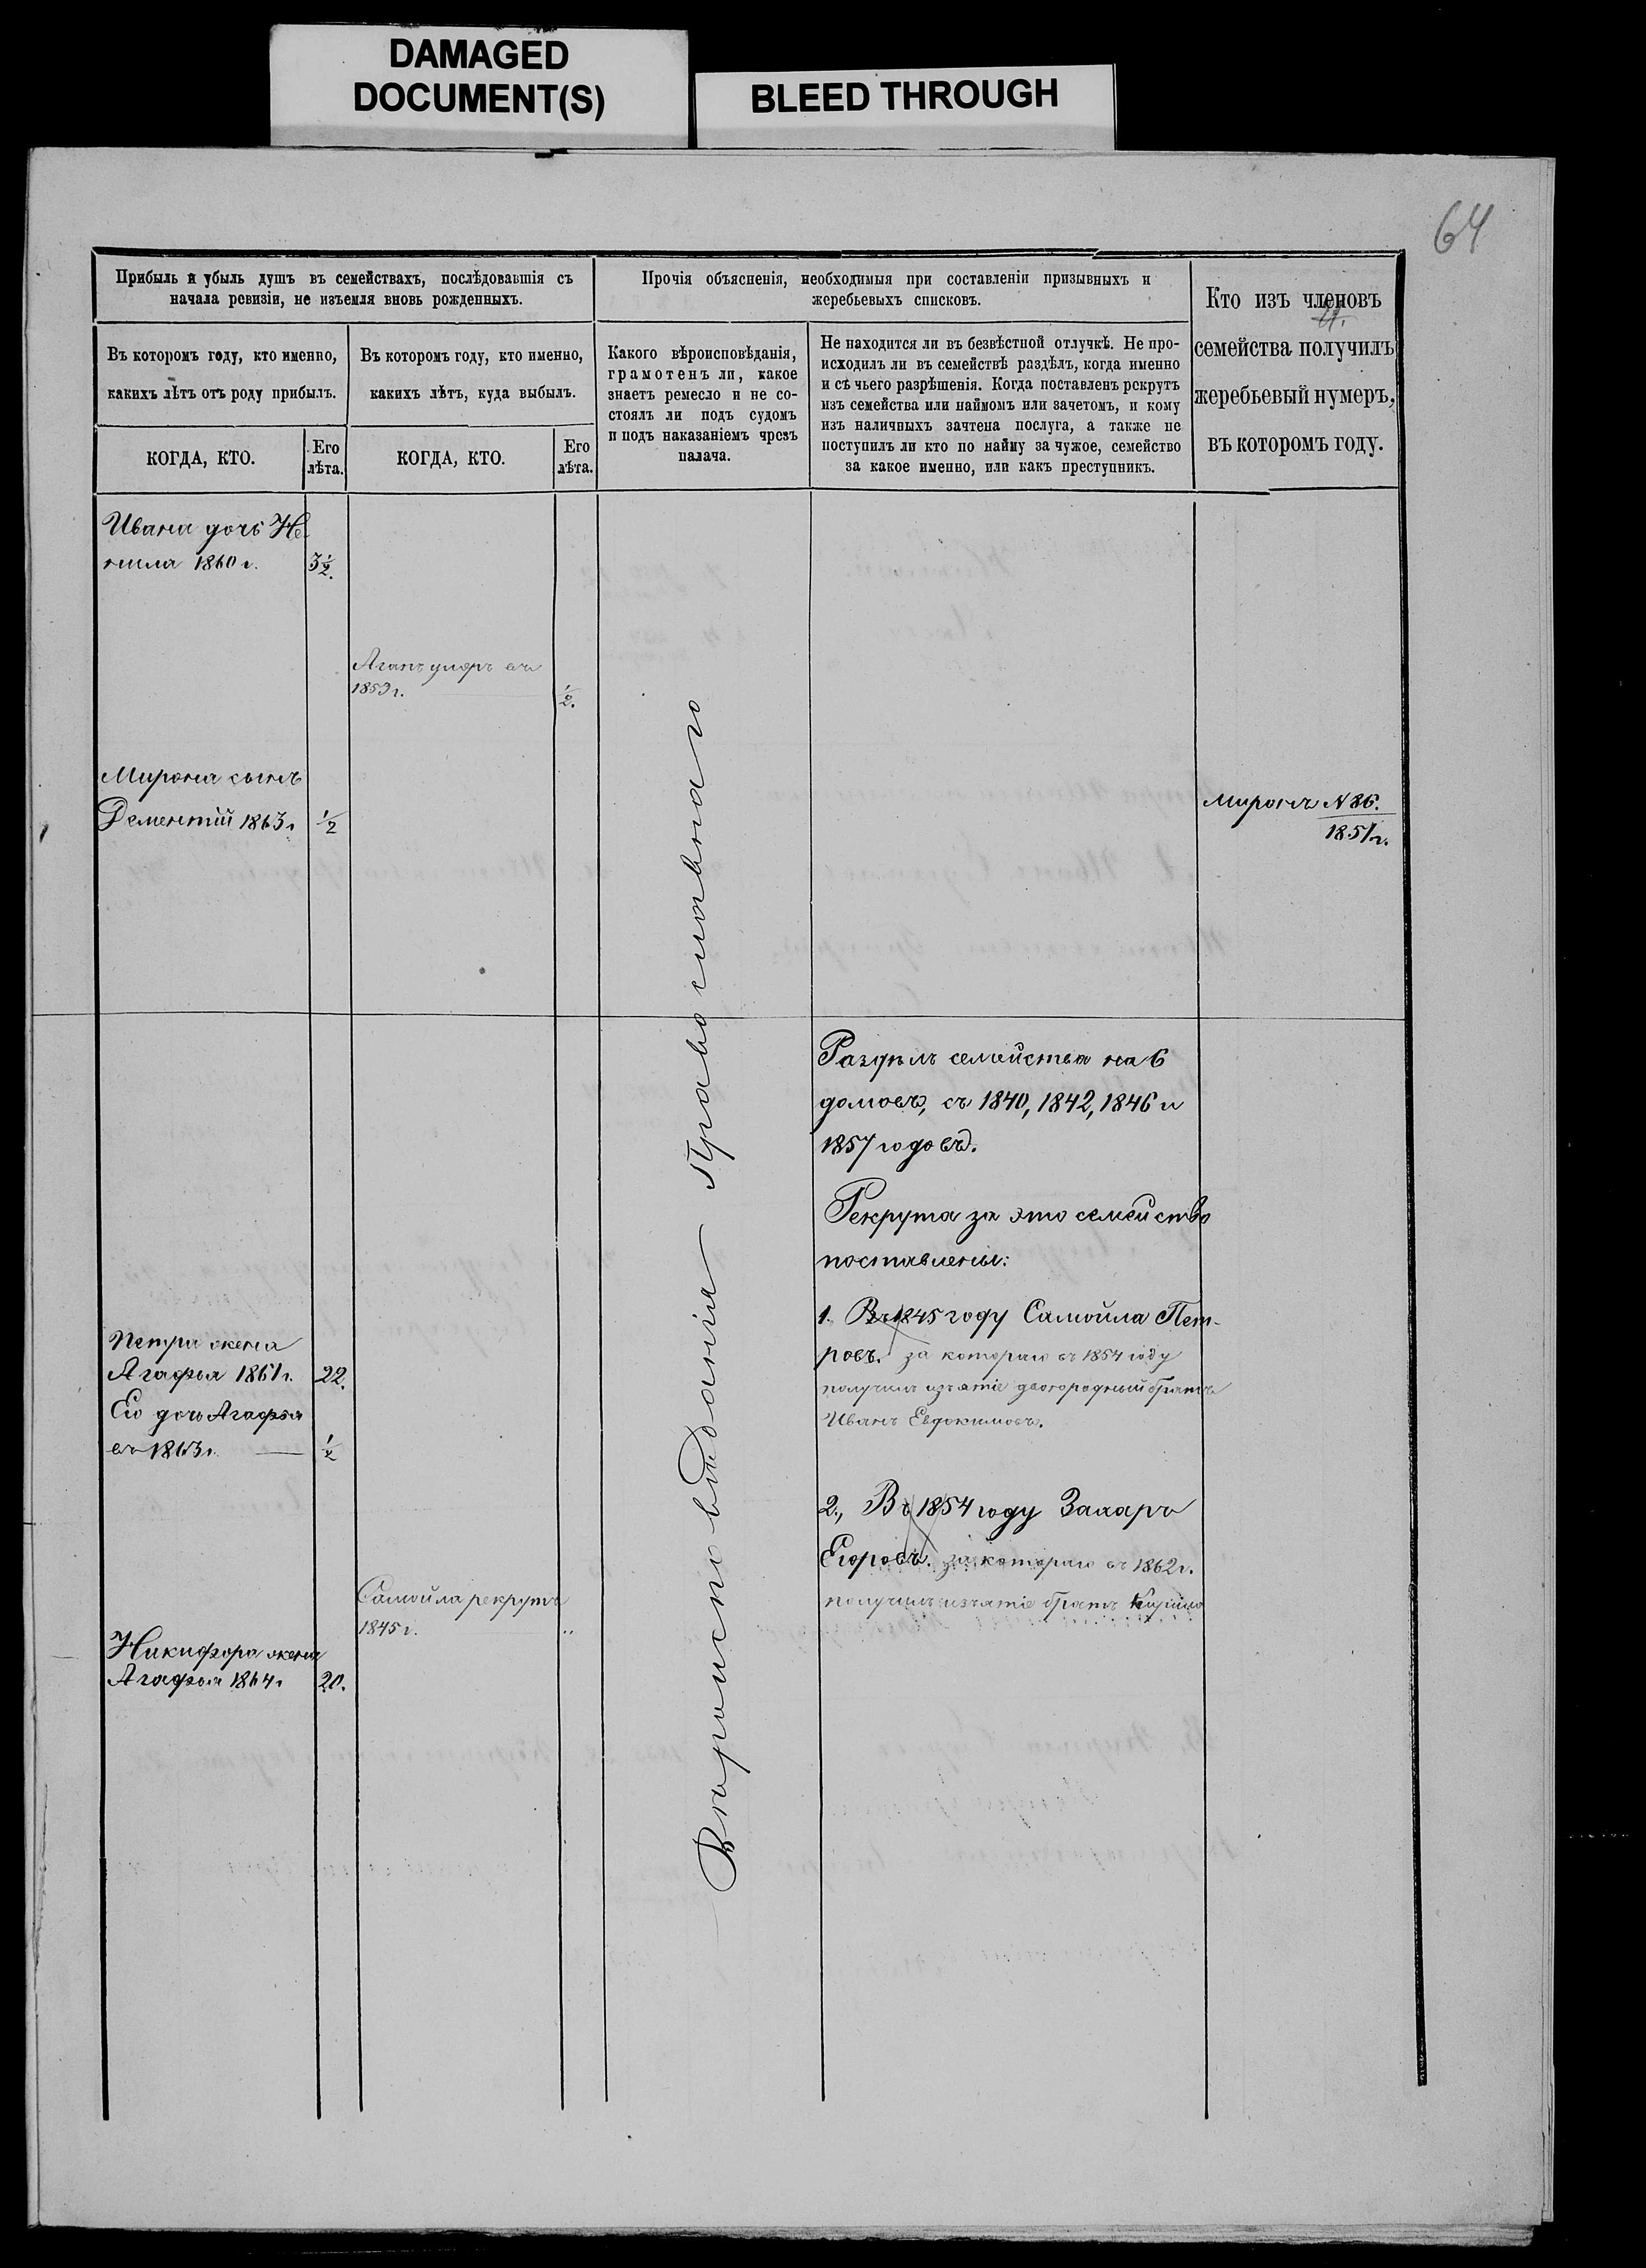 DAMAGED
DOCUMENT(S)
BLEED THROUGH
64
Прибыль и убыль душъ въ семействахъ, послѣдовавшія съ
начала ревизіи, не изъемля вновь рожденныхъ.
Въ которомъ году, кто именно,
какихъ лѣтъ отъ роду прибылъ.
КОГДА, КТО.
Его
лѣта.
Въ которомъ году, кто именно,
какихъ лѣтъ, куда выбылъ.
КОГДА, КТО.
Его
лѣта.
Прочія объясненія, необходимыя при составленіи призывныхъ и
жеребьевыхъ списковъ.
Какого вѣроисповѣданія,
грамотенъ ли, какое
знаетъ ремесло и не со-
стоялъ ли подъ судомъ
и подъ наказаніемъ чрезъ
палача.
Не находится ли въ безвѣстной отлучкѣ. Не про-
исходилъ ли въ семействѣ раздѣлъ, когда именно
и съ чьего разрѣшенія. Когда поставленъ рекрутъ
изъ семейства или наймомъ или зачетомъ, и кому
изъ наличныхъ зачтена послуга, а также не
поступилъ ли кто по найму за чужое, семейство
за какое именно, или какъ преступникъ.
Кто изъ членовъ
семейства получилъ
жеребьевый нумеръ,
въ которомъ году.
Ивана дочь Не
нила 1860 г. 3 1/2.
Агапъ умеръ въ
1859 г. 1/2.
Мирона сынъ
Дементій 1863 г 1/2
Миронъ N 86.
1851 г.
Вѣроисповѣданія Православнаго
Раздѣлъ семейства на 6
домовъ, съ 1840, 1842, 1846 и
1857 годовъ.
Рекрута за это семейство
поставлены:
1. Въ 1845 году Самойла Пет-
ровъ. за котораго въ 1854 году
получилъ изъятіе двоюродный братъ
Иванъ Евдокимовъ.
2., Въ 1854 году Захаръ
Егоровъ. за котораго въ 1862 г.
получилъ изъятіе братъ Кирило
Петра жена
Агафья 1861 г. 22.
Его дочь Агафья
въ 1863 г. 1/2
Самойла рекрутъ
1845 г. "
Никифора жена
Агафья 1864 г 20.